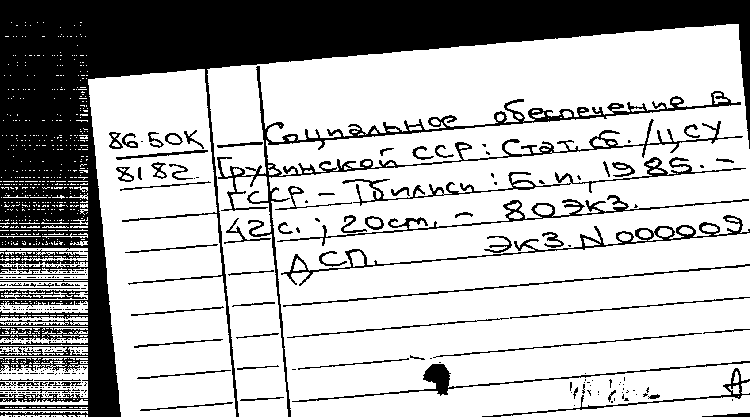 86-50К
8182
Социальное обеспечение в
Грузинской ССР: Стат. сб. / ЦСУ
ГССР. – Тбилиси : Б. и., 1985. –
42 с. ; 20 cm. – 80 экз.
ДСП. Экз. N 000009.
Д